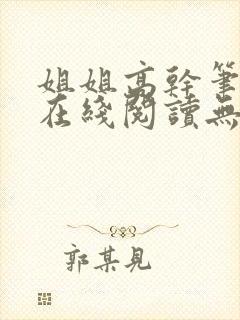 姐姐高幹筆
在綫閱讀無
郭某見